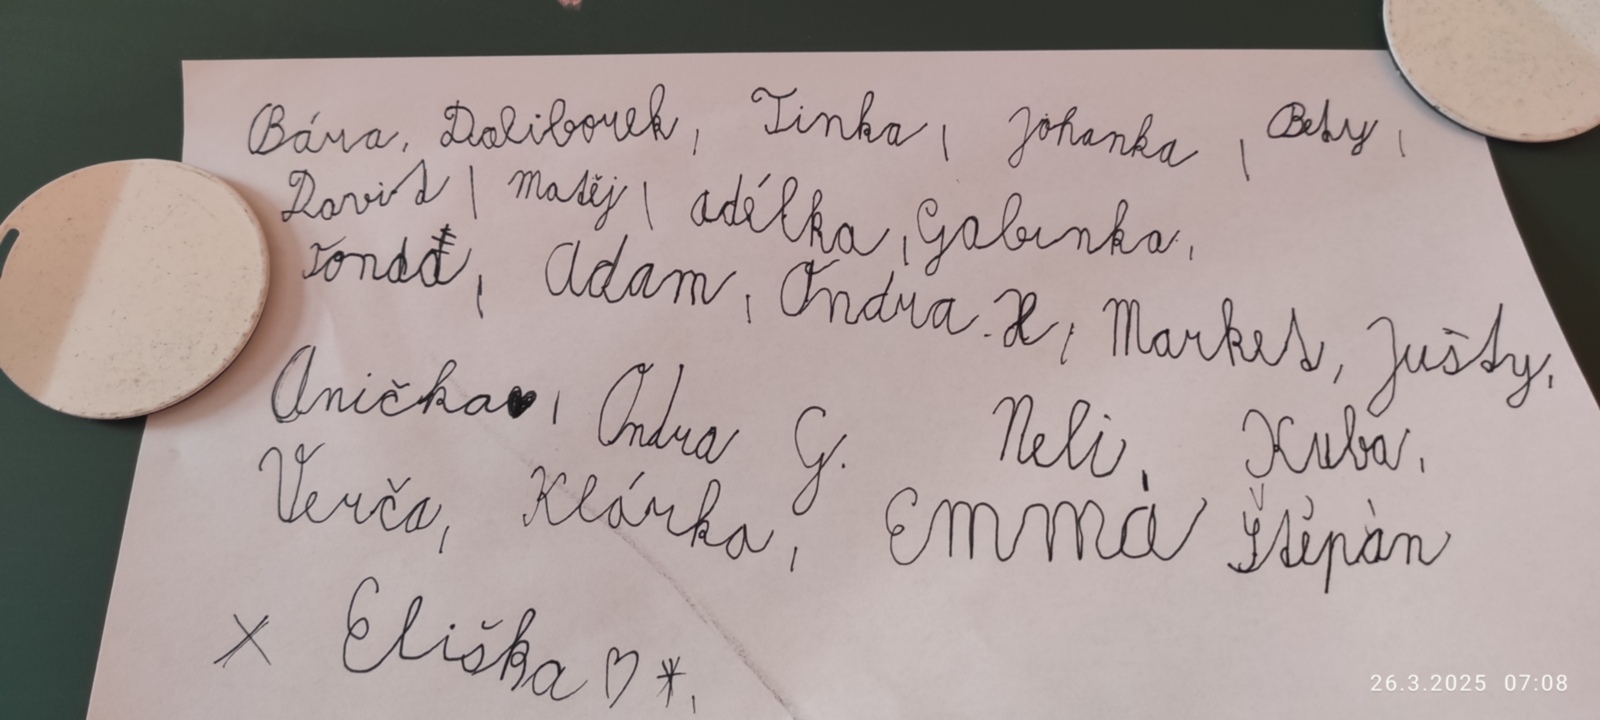 Bára, Daliborek, Tinka, Johanka, Bety,
David, Matěj, Adélka, Gabinka,
Tonda, Adam, Ondra. H, Market, Jušty,
Anička♥, Ondra G. Neli, Kuba,
Verča, Klárka, Emma Štěpán
x Eliška ♡*,
26.3.2025 07:08